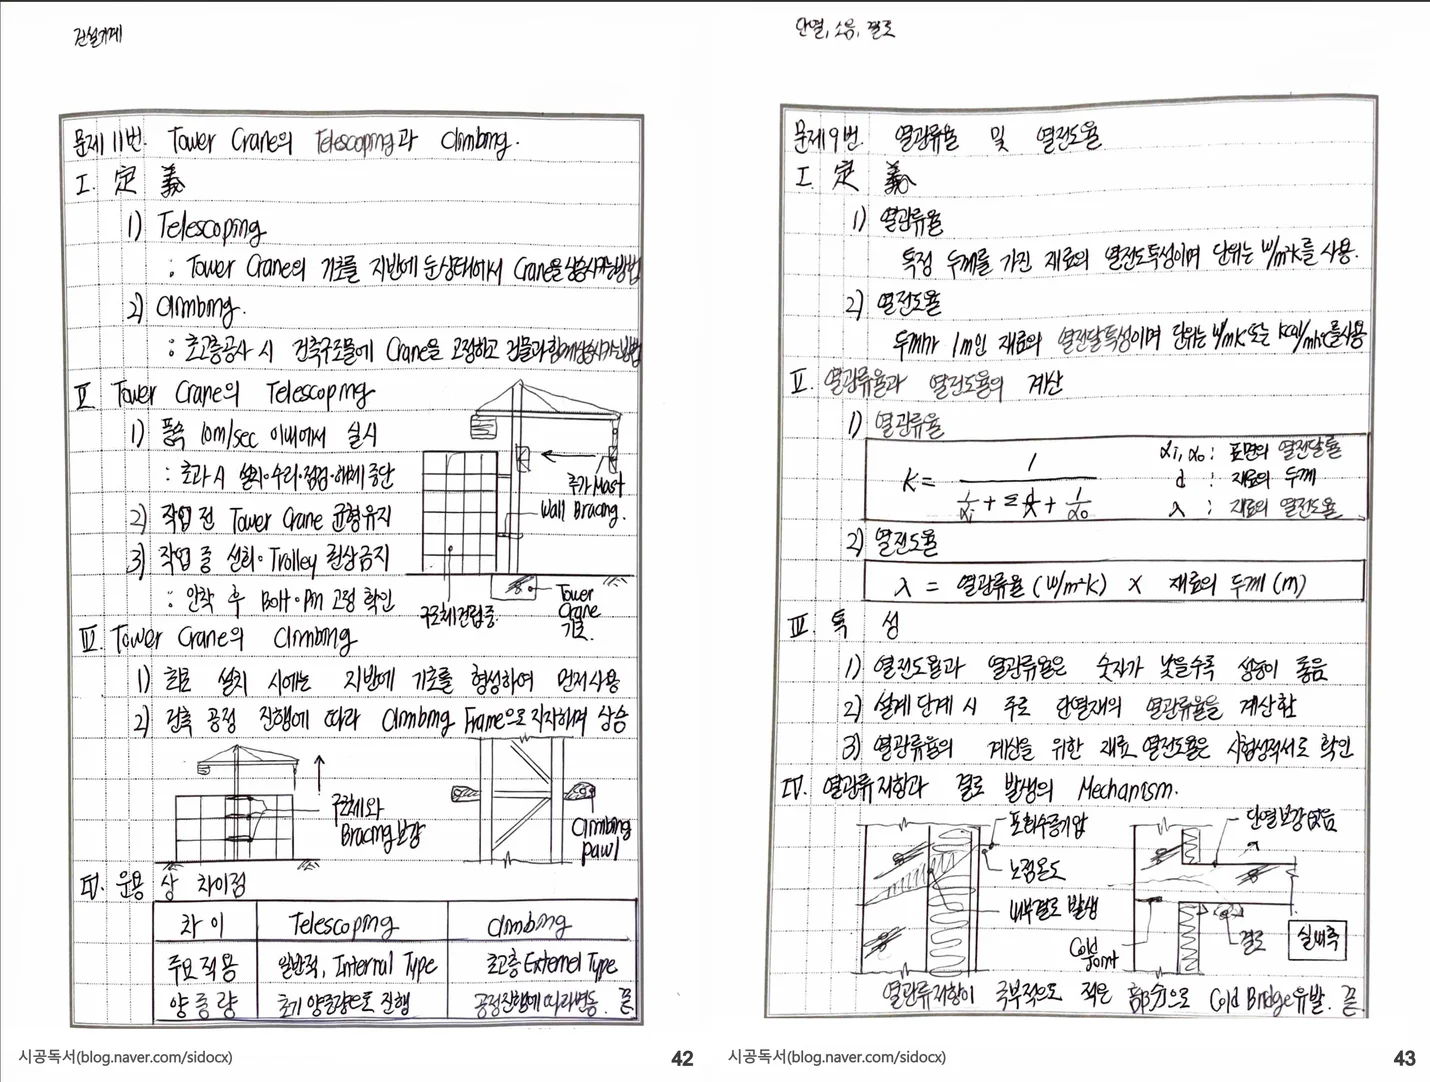 건설기계
문제 11번. Tower Crane의 Telescoping과 Climbing.
I. 定義
1) Telescoping
: Tower Crane의 기초를 지반에 둔상태에서 Crane을 상승시키는방법
2) Climbing.
: 초고층공사 시 건축구조물에 Crane을 고정하고 건물과함께상승시키는방법
II. Tower Crane의 Telescoping
1) 풍속 10m/sec 이내에서 실시
: 초과시 설치·수리·점검·해체 중단
2) 작업 전 Tower Crane 균형유지
3) 작업 중 선회·Trolley 권상금지
: 안착 후 Bolt·Pin 고정 확인
추가 Mast
Wall Bracing.
구조체건립중.
Tower
Crane
기초.
III. Tower Crane의 Climbing
1) 최초 설치 시에는 지반에 기초를 형성하여 먼저사용
2) 건축 공정 진행에 따라 Climbing Frame으로 지지하며 상승
구조체와
Bracing 보강
Climbing
pawl
IV. 운용 상 차이점
차이 Telescoping Climbing
주요적용 일반적, Internal Type 초고층 Externel Type
양중량 초기 양중량으로 진행 공정진행에 따라변동. 끝
시공독서(blog.naver.com/sidocx) 42
단열, 소음, 결로
문제 9번. 열관류율 및 열전도율
I. 定義
1) 열관류율
특정 두께를 가진 재료의 열전도특성이며 단위는 W/m²K를 사용.
2) 열전도율
두께가 1m인 재료의 열전달특성이며 단위는 W/mK 또는 Kcal/mh℃를사용
II. 열관류율과 열전도율의 계산
1) 열관류율
K = 1 / (1/αi + Σ d/λ + 1/αo)
αi, αo : 표면의 열전달율
d : 재료의 두께
λ : 재료의 열전도율
2) 열전도율
λ = 열관류율 (W/m²K) × 재료의 두께 (m)
III. 특성
1) 열전도율과 열관류율은 숫자가 낮을수록 성능이 좋음
2) 설계단계 시 주로 단열재의 열관류율을 계산함
3) 열관류율의 계산을 위한 재료 열전도율은 시험성적서로 확인
IV. 열관류저항과 결로 발생의 Mechanism.
포화수증기압
노점온도
내부결로 발생
단열보강 없음
Cold
Joint
결로
실내측
열관류저항이 국부적으로 적은 部分으로 Cold Bridge유발. 끝
시공독서(blog.naver.com/sidocx) 43